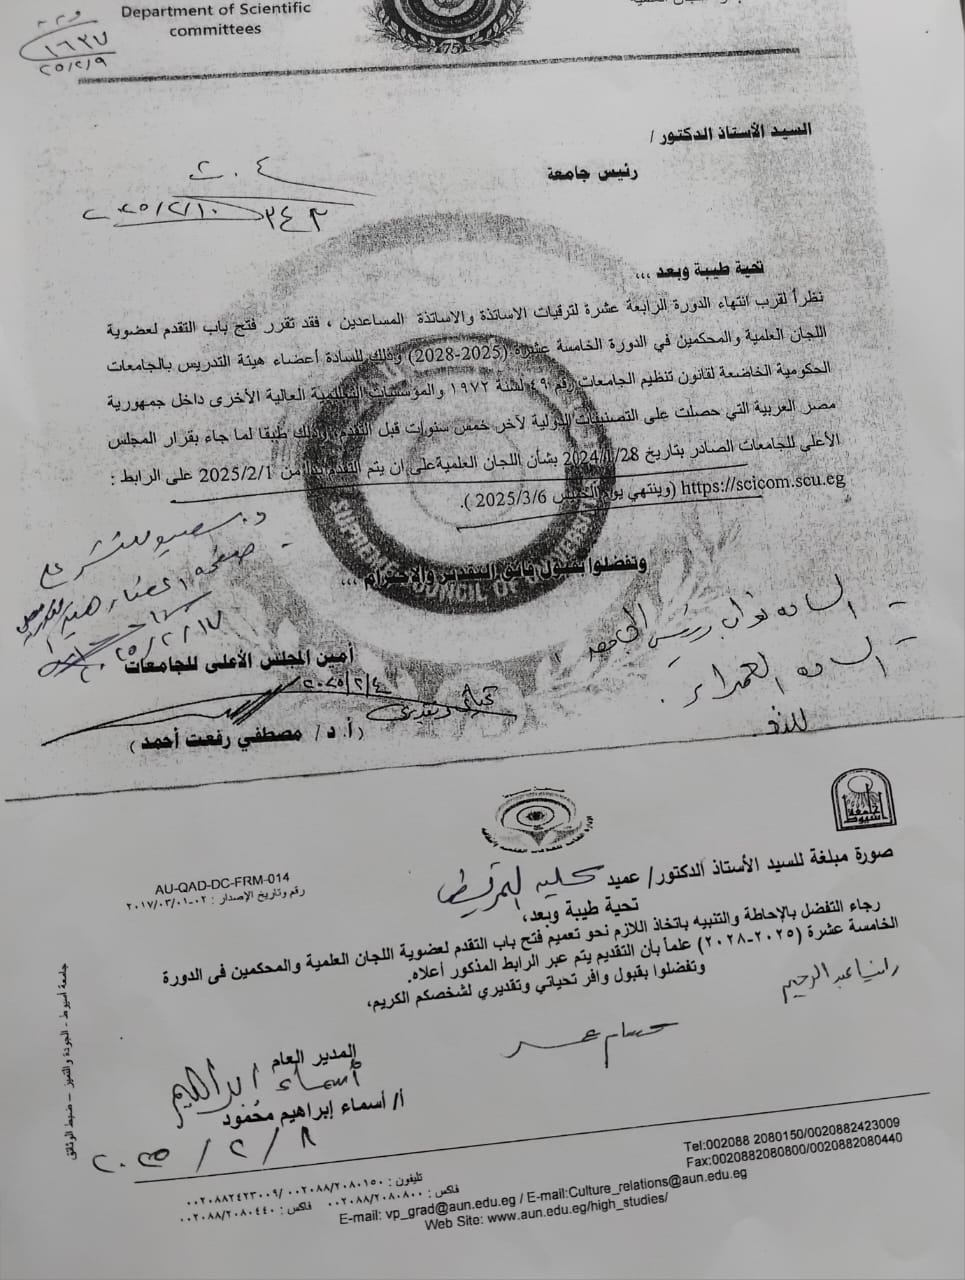 Department of Scientific
committees
١٦٣٧
٢٥/٢/٩
75
السيد الأستاذ الدكتور /
رئيس جامعة
٢٠٤
٣٤٣ ٢٠٢٥/٢/١٠
تحية طيبة وبعد ،،،
نظراً لقرب انتهاء الدورة الرابعة عشرة لترقيات الاساتذة والاساتذة المساعدين ، فقد تقرر فتح باب التقدم لعضوية
اللجان العلمية والمحكمين في الدورة الخامسة عشرة (2025-2028) وذلك للسادة أعضاء هيئة التدريس بالجامعات
الحكومية الخاضعة لقانون تنظيم الجامعات رقم ٤٩ لسنة ١٩٧٢ والمؤسسات التعليمية العالية الأخرى داخل جمهورية
مصر العربية التي حصلت على التصنيفات الدولية لآخر خمس سنوات قبل التقدم، وذلك طبقا لما جاء بقرار المجلس
الأعلي للجامعات الصادر بتاريخ 2024/1/28 بشأن اللجان العلمية على ان يتم التقدم بدءا من 2025/2/1 على الرابط :
https://scicom.scu.eg (وينتهي يوم الخميس 2025/3/6 ).
SUPREME COUNCIL OF UNIVERSITIES
وتفضلوا بقبول فائق التقدير والاحترام ،،،
للنشر على
صفحة أعضاء هيئة
٢٥/٢/١٧
السادة نواب رئيس الجامعة
السادة العمداء
أمين المجلس الأعلى للجامعات
٢٠٢٥/٢/٤
(أ. د/ مصطفي رفعت أحمد )
جامعة أسيوط
صورة مبلغة للسيد الأستاذ الدكتور/ عميد كلية التمريض
AU-QAD-DC-FRM-014
رقم وتاريخ الإصدار : ٠٢-٢٠١٧/٠٣/٠١
تحية طيبة وبعد،
رجاء التفضل بالإحاطة والتنبيه باتخاذ اللازم نحو تعميم فتح باب التقدم لعضوية اللجان العلمية والمحكمين فى الدورة
الخامسة عشرة (٢٠٢٥-٢٠٢٨) علماً بأن التقديم يتم عبر الرابط المذكور أعلاه.
وتفضلوا بقبول وافر تحياتي وتقديري لشخصكم الكريم،
رانيا عبد الرحيم
حسام عمر
المدير العام
أسماء ابراهيم
أ/ أسماء إبراهيم محمود
٢٠٢٥/٢/٨
جامعة أسيوط - الجودة والتميز - ضبط الوثائق
Tel:002088 2080150/0020882423009
Fax:0020882080800/0020882080440
تليفون : ٠٠٢٠٨٨/٢٠٨٠١٥٠ /٠٠٢٠٨٨٢٤٢٣٠٠٩
فاكس : ٠٠٢٠٨٨/٢٠٨٠٨٠٠ فاكس : ٠٠٢٠٨٨/٢٠٨٠٤٤٠
E-mail: vp_grad@aun.edu.eg / E-mail:Culture_relations@aun.edu.eg
Web Site: www.aun.edu.eg/high_studies/